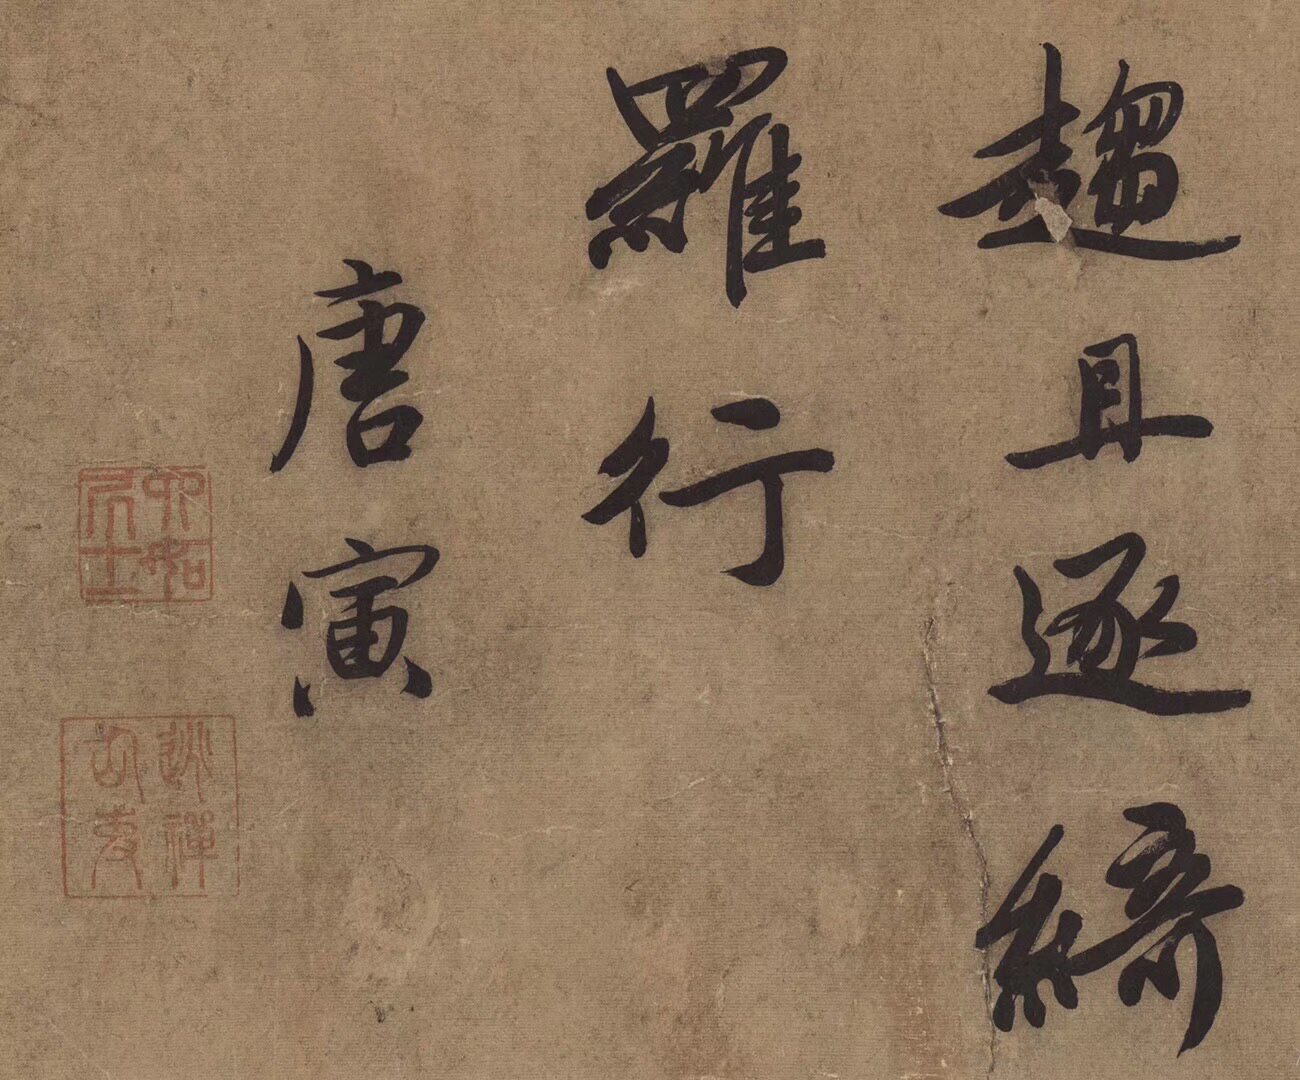 趨且逐綺
羅行
唐寅
六如居士
逃禪